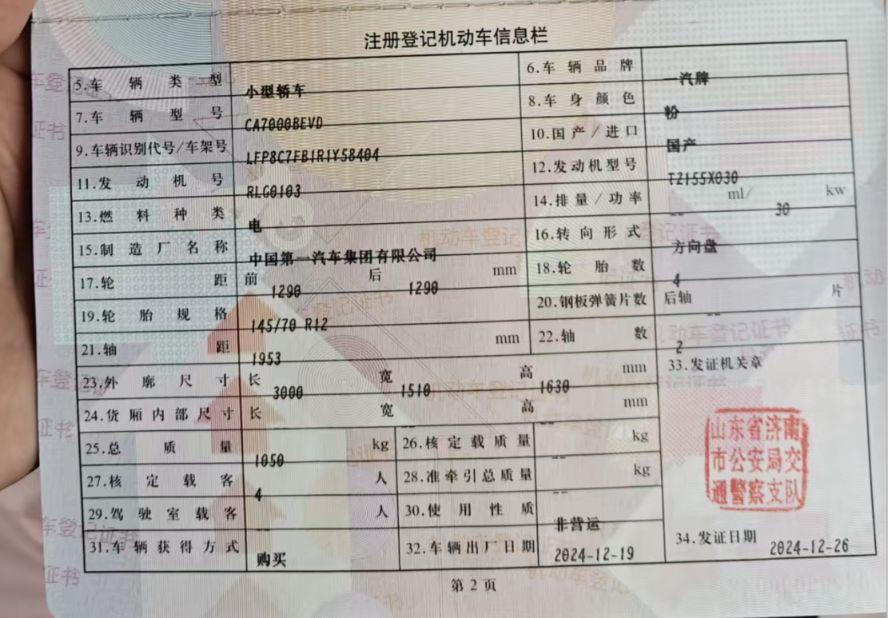 注册登记机动车信息栏
5.车辆类型 小型轿车 6.车辆品牌 一汽牌
7.车辆型号 CA7000BEVD 8.车身颜色 粉
9.车辆识别代号/车架号 LFP8C7FB1R1Y58404 10.国产/进口 国产
11.发动机号 RLG0103 12.发动机型号 TZ155X030
13.燃料种类 电 14.排量/功率 -- ml/ 30 kw
15.制造厂名称 中国第一汽车集团有限公司 16.转向形式 方向盘
17.轮距 前 1290 后 1290 mm 18.轮胎数 4
19.轮胎规格 145/70 R12 20.钢板弹簧片数 后轴 -- 片
21.轴距 1953 mm 22.轴数 2
23.外廓尺寸 长 3000 宽 1510 高 1630 mm 33.发证机关章
24.货厢内部尺寸 长 宽 高 mm
山东省济南
市公安局交
通警察支队
25.总质量 1050 kg 26.核定载质量 -- kg
27.核定载客 4 人 28.准牵引总质量 -- kg
29.驾驶室载客 -- 人 30.使用性质 非营运
31.车辆获得方式 购买 32.车辆出厂日期 2024-12-19 34.发证日期 2024-12-26
第2页